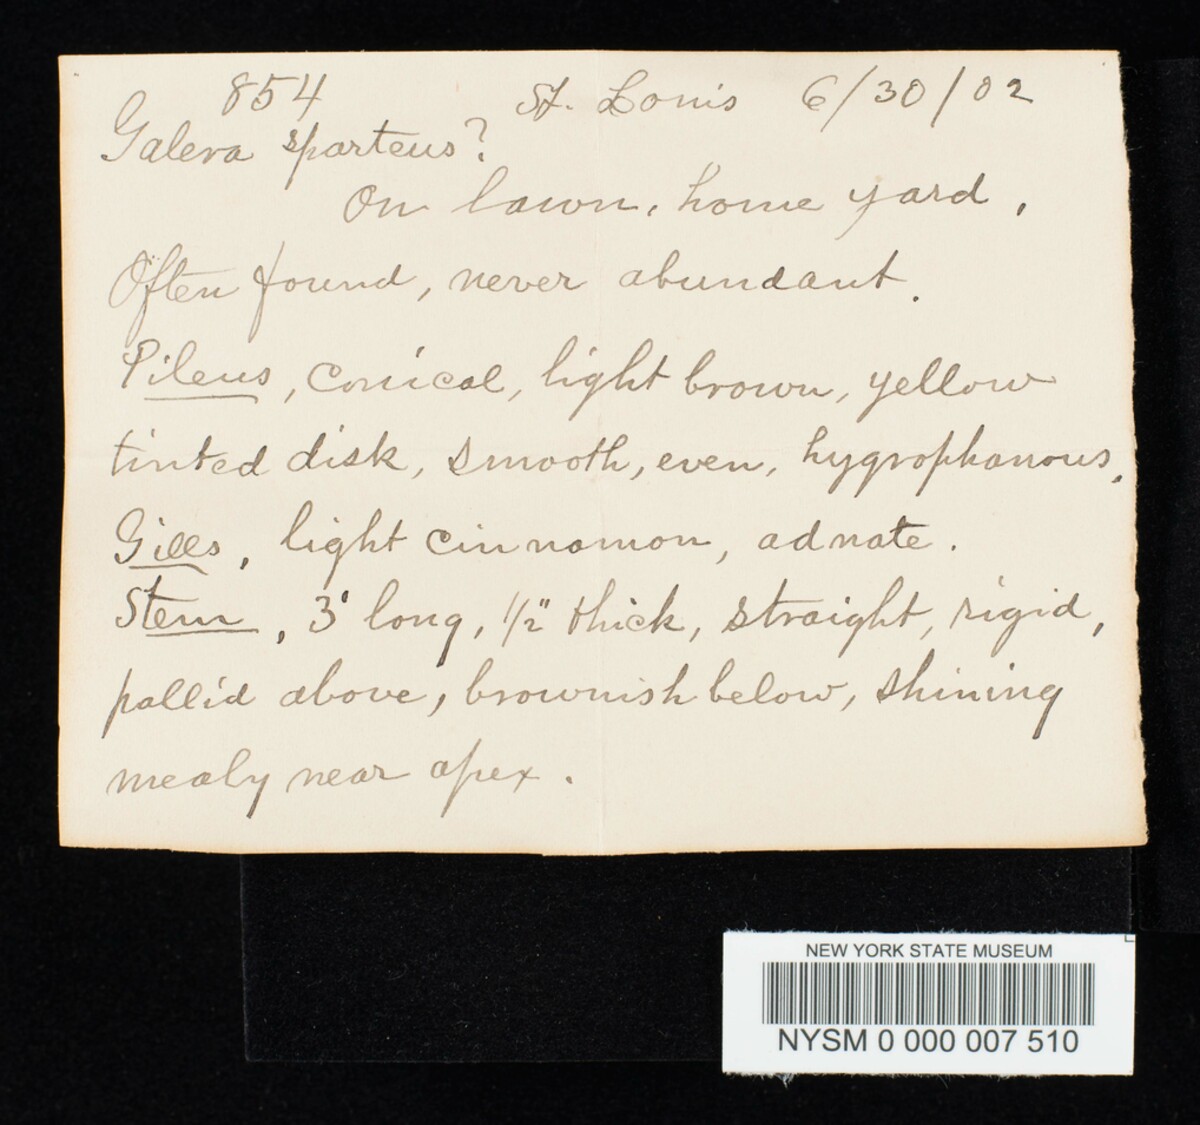 854 St. Louis 6/30/02
Galera sparteus?
On lawn, home yard,
Often found, never abundant.
Pileus, conical, light brown, yellow
tinted disk, smooth, even, hygrophanous.
Gills, light cinnamon, adnate.
Stem, 3' long, 1/2" thick, straight, rigid,
pallid above, brownish below, shining
mealy near apex.
NEW YORK STATE MUSEUM
NYSM 0 000 007 510